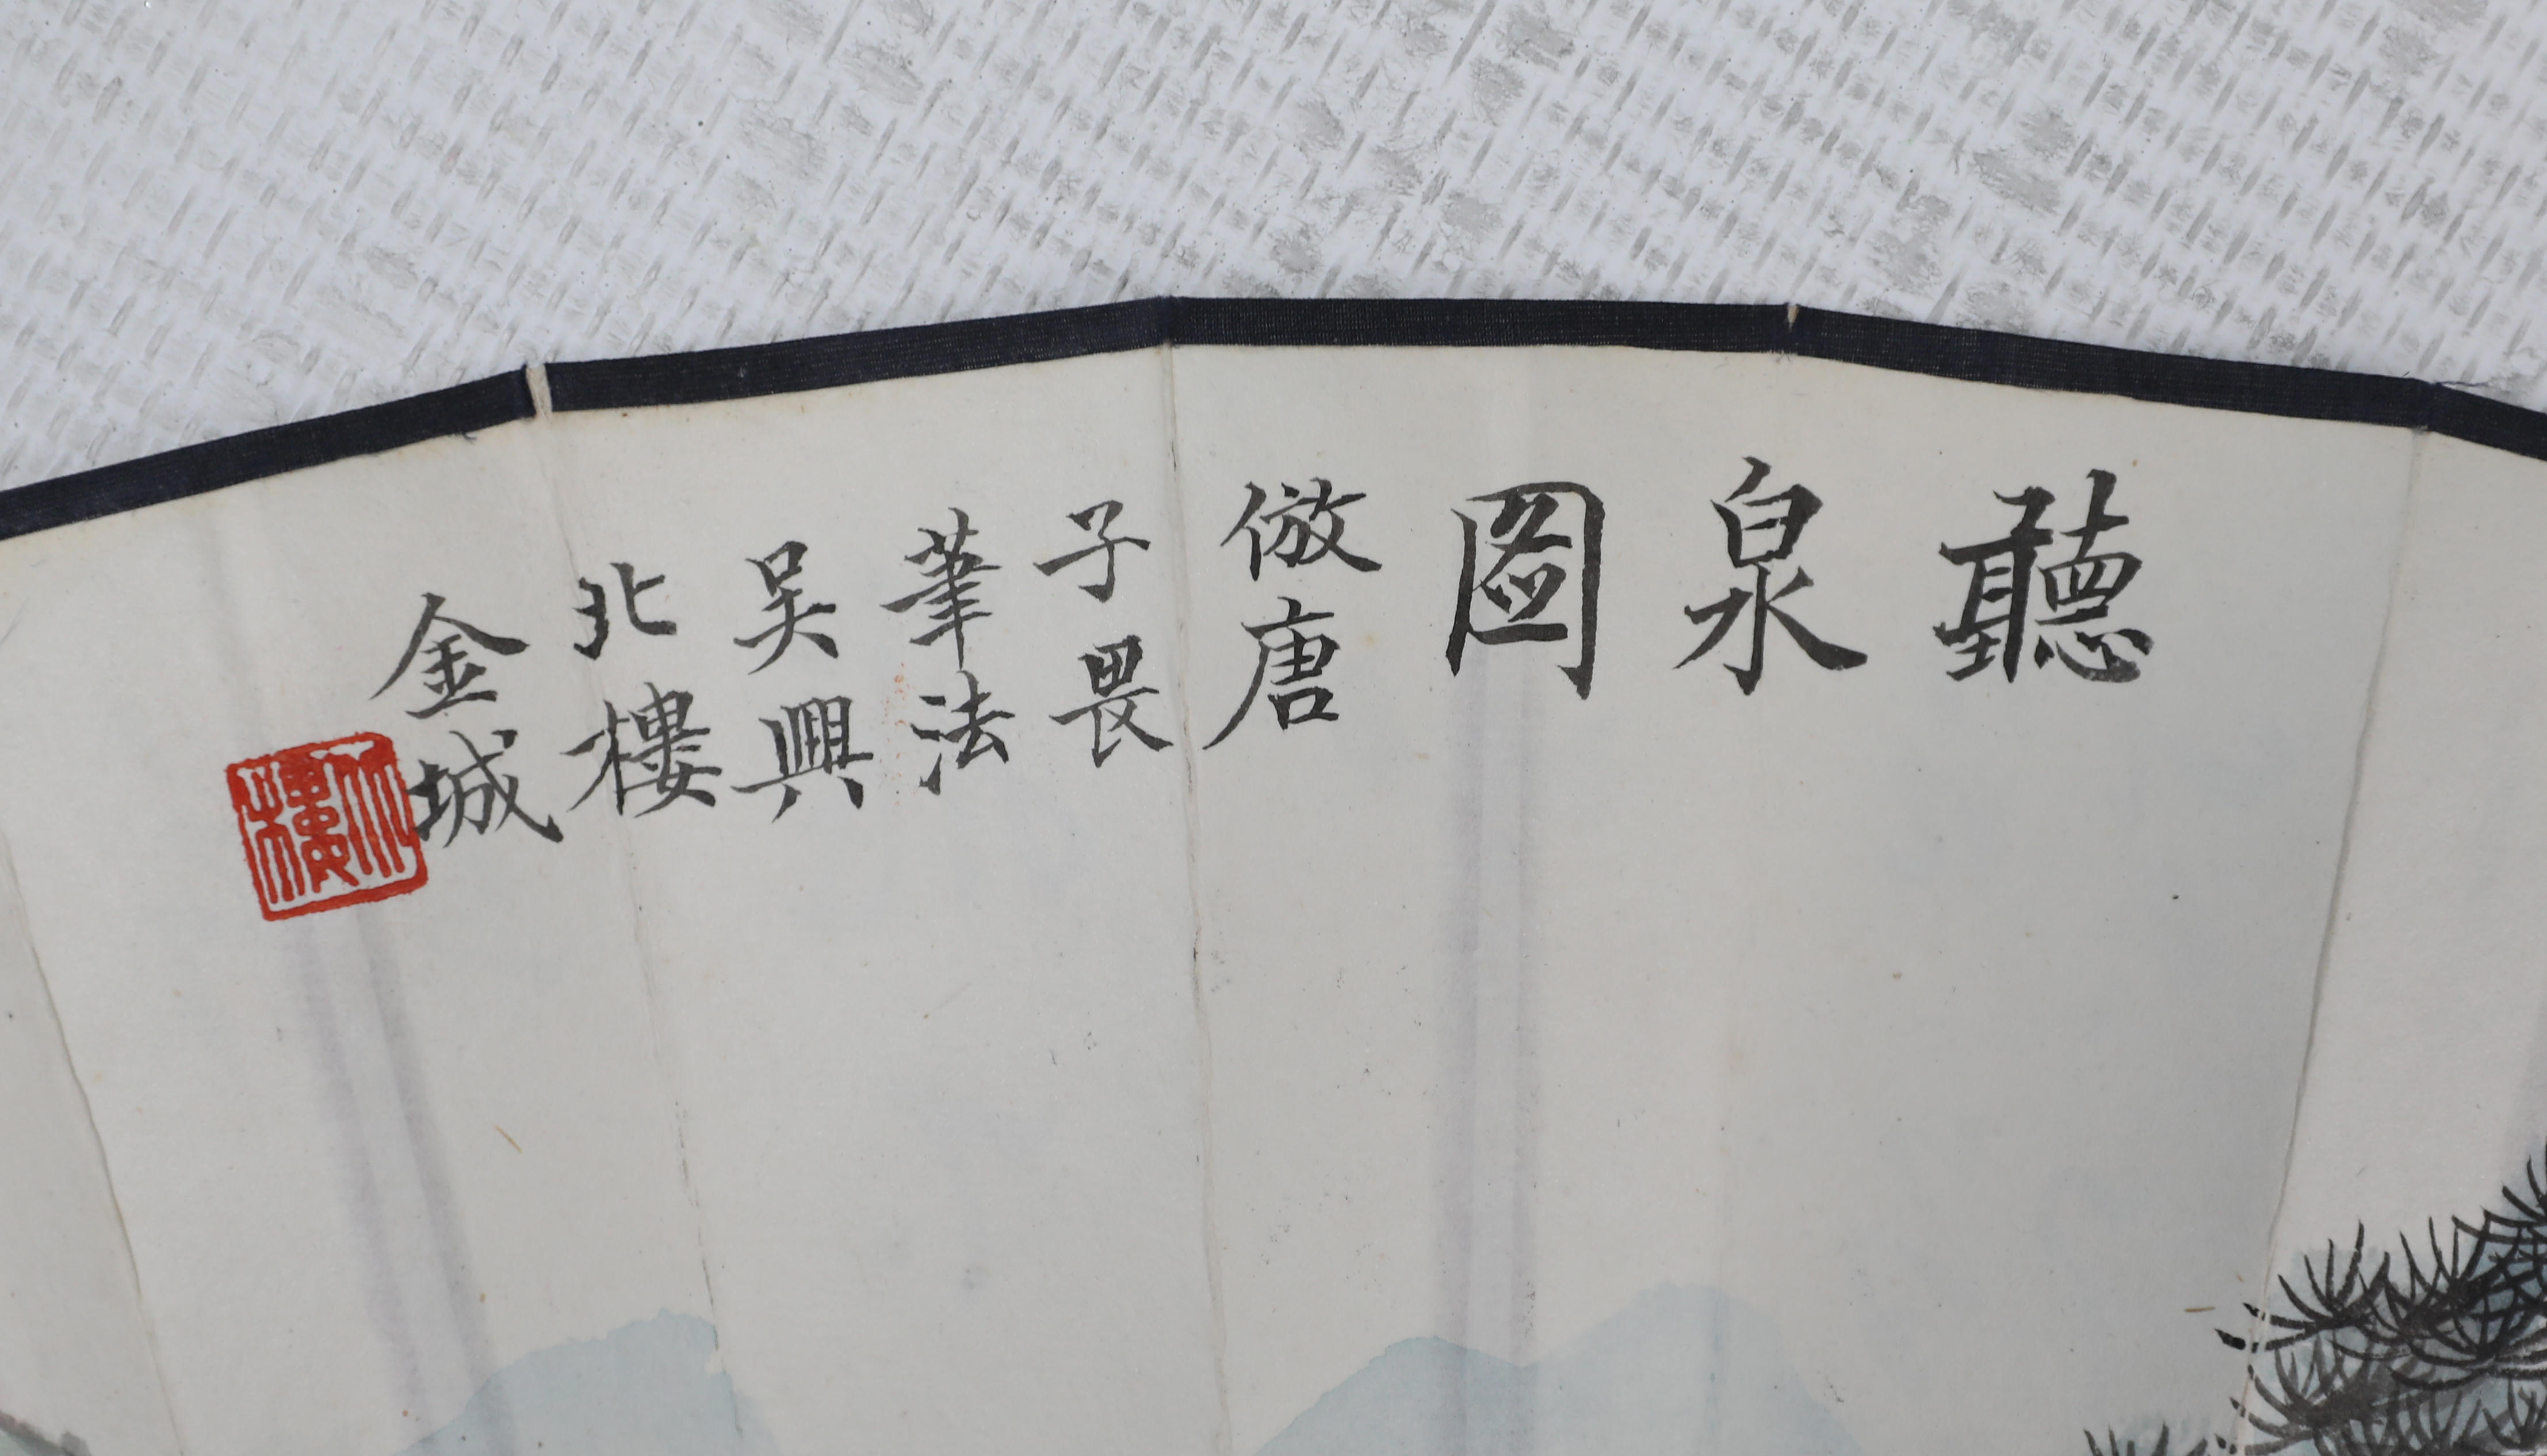 聽
泉
圖
倣唐
子畏
筆法
吴興
北樓
金城
北樓